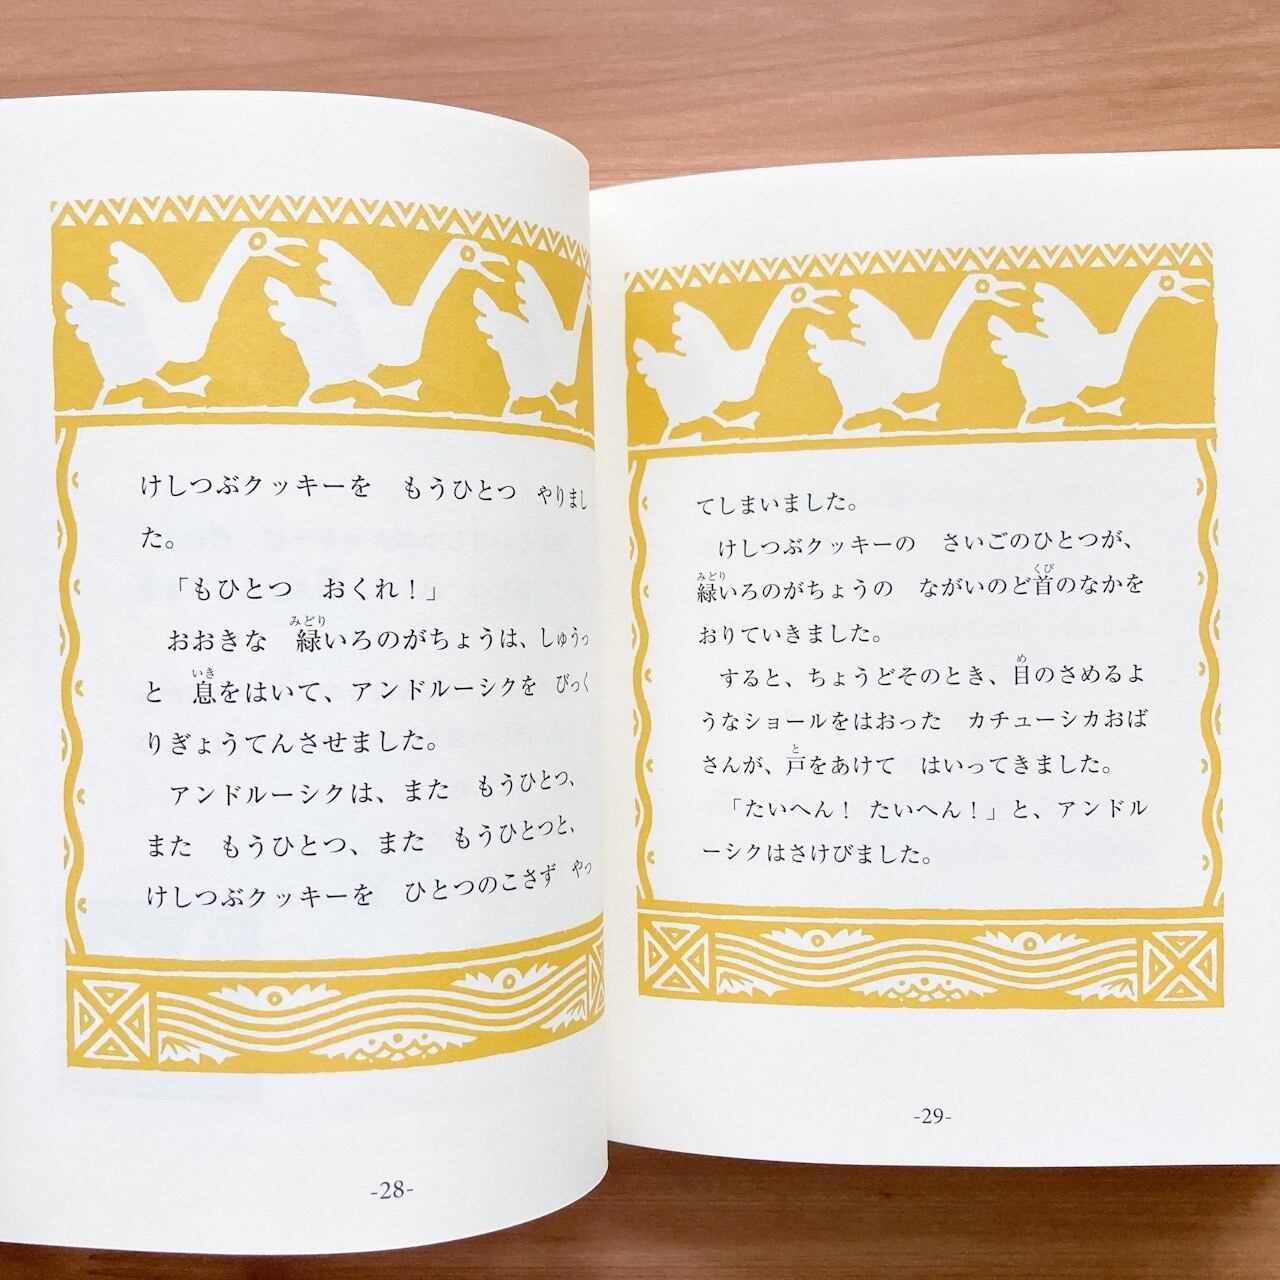 けしつぶクッキーを　もうひとつ　やりまし
た。
「もひとつ　おくれ！」
おおきな　緑いろのがちょうは、しゅうっ
と　息をはいて、アンドルーシクを　びっく
りぎょうてんさせました。
アンドルーシクは、また　もうひとつ、
また　もうひとつ、また　もうひとつと、
けしつぶクッキーを　ひとつのこさず　やっ
-28-
てしまいました。
けしつぶクッキーの　さいごのひとつが、
緑いろのがちょうの　ながいのど首のなかを
おりていきました。
すると、ちょうどそのとき、目のさめるよ
うなショールをはおった　カチューシカおば
さんが、戸をあけて　はいってきました。
「たいへん！　たいへん！」と、アンドル
ーシクはさけびました。
-29-